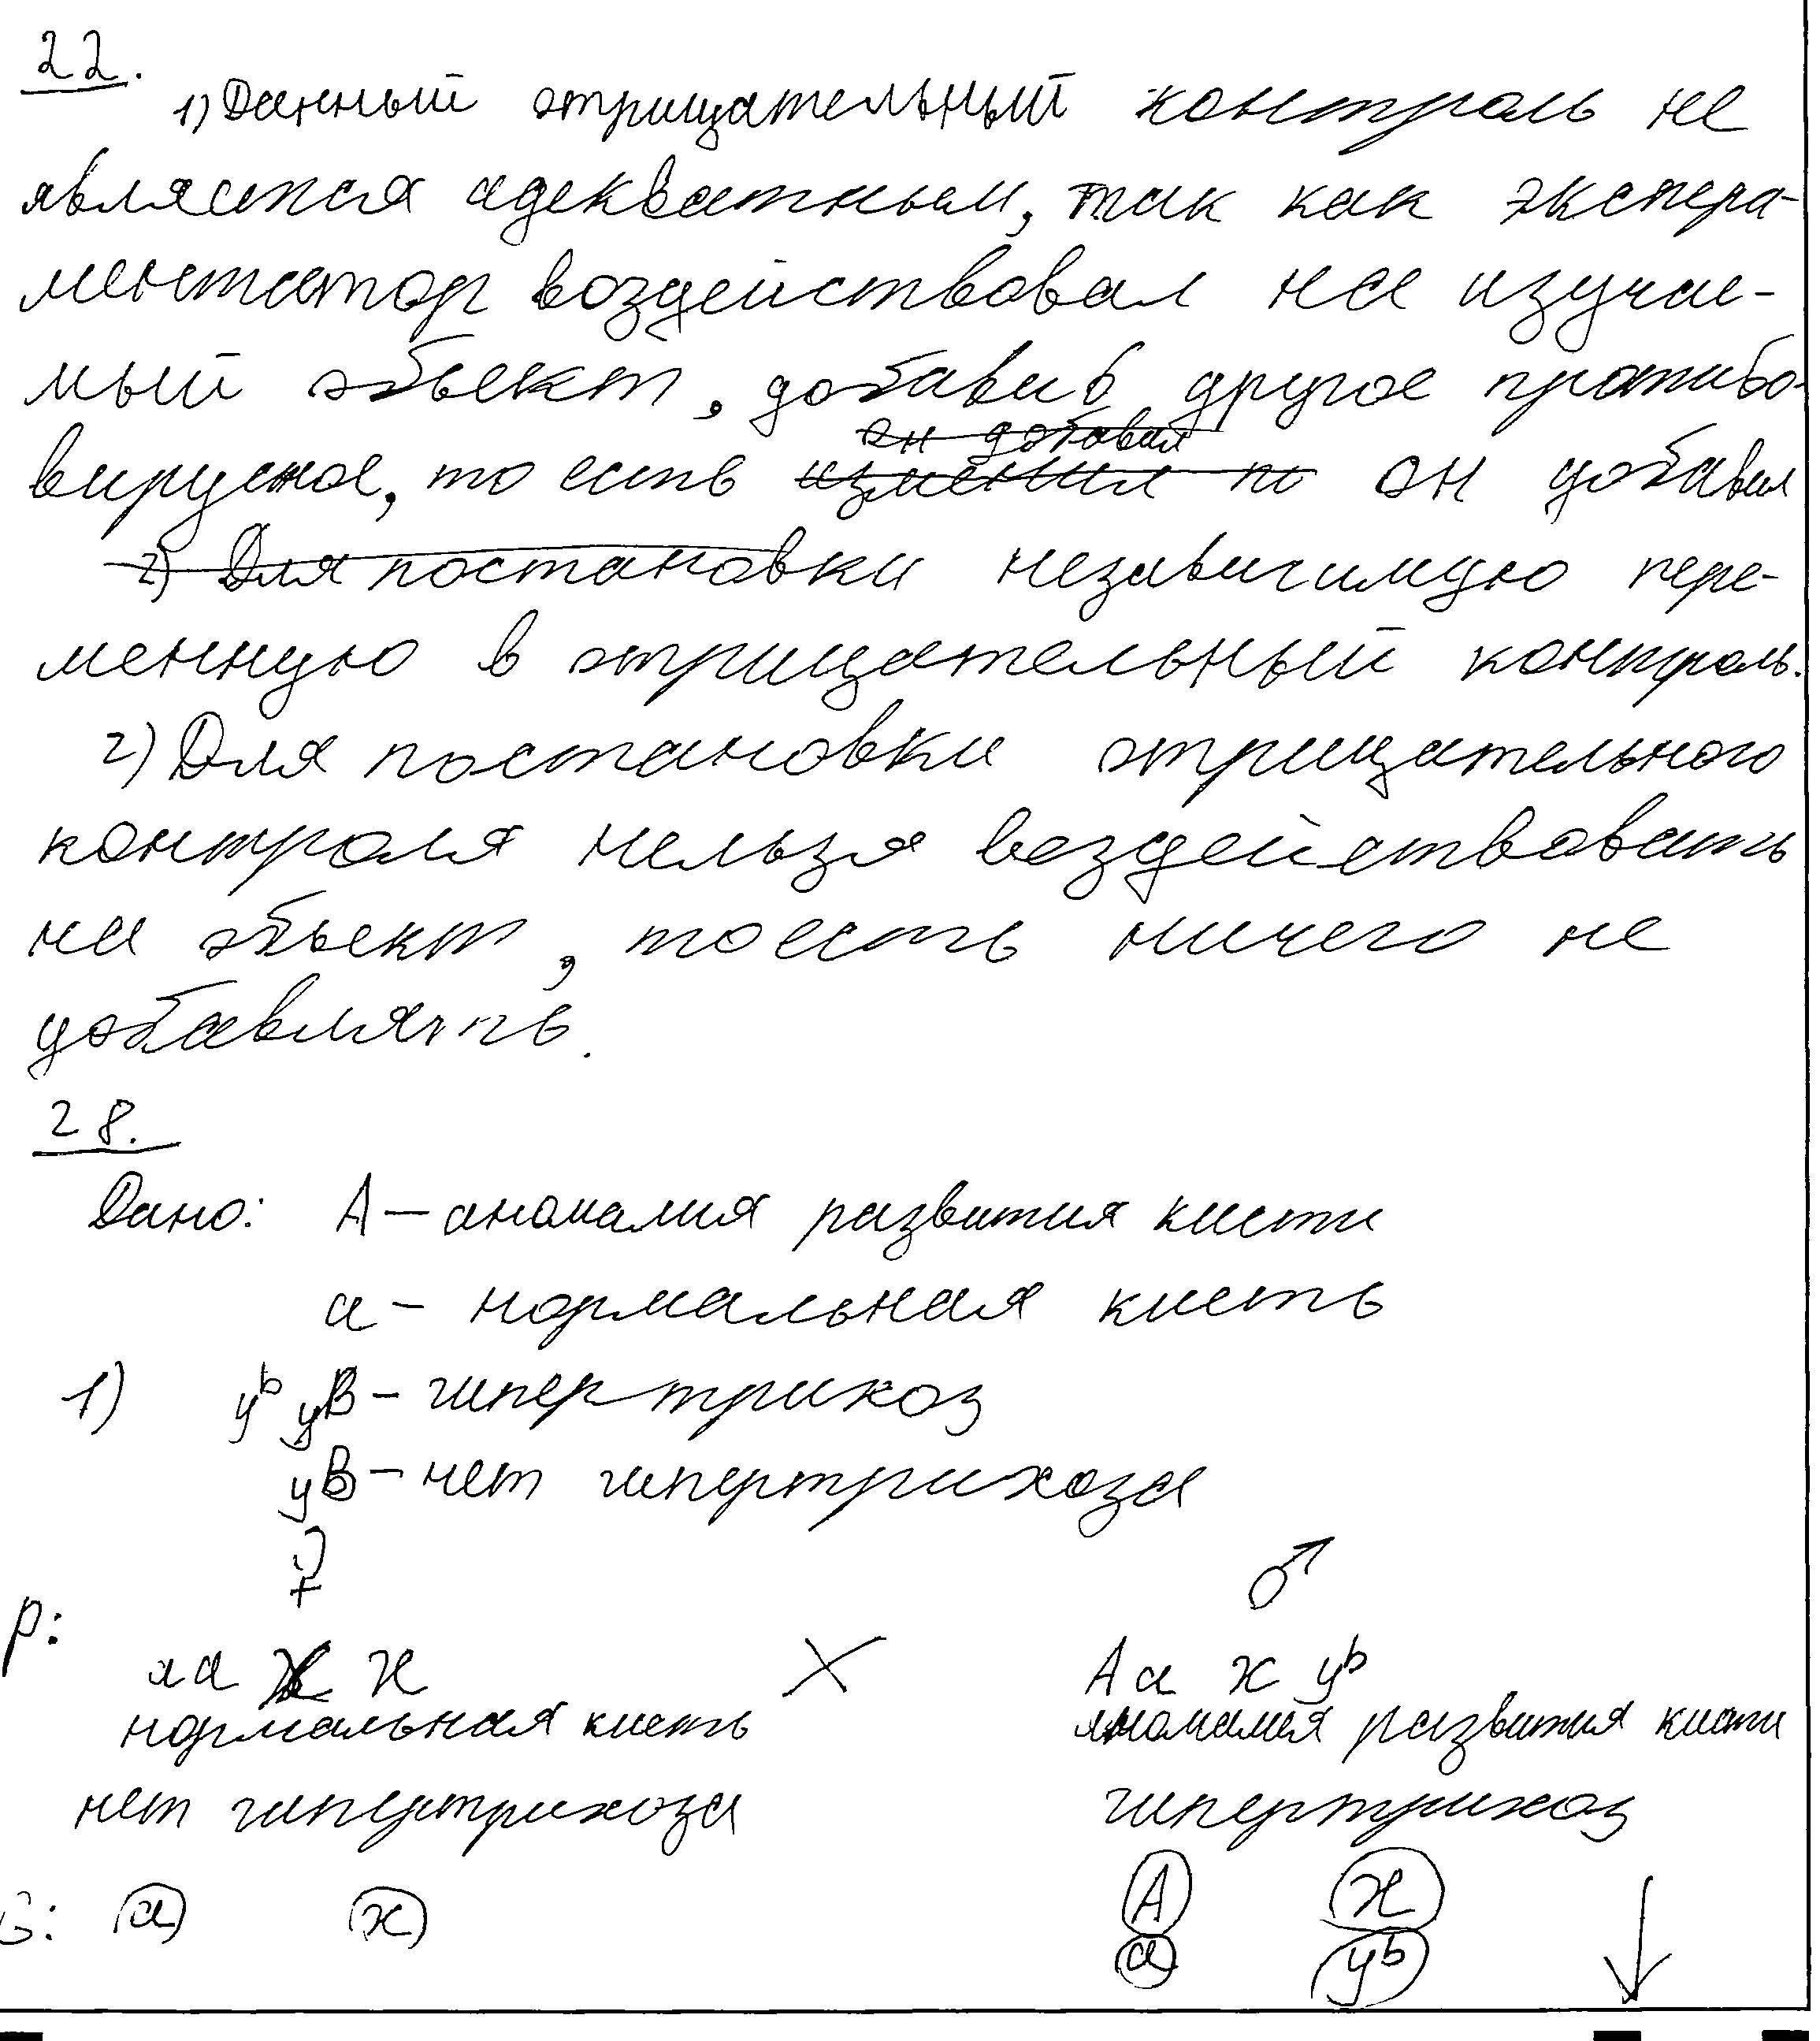 22.
1) Данный отрицательный контроль не
является адекватным, так как экспера-
ментатор воздействовал на изучае-
мый объект, добавив другое противо-
вирусное, то есть он добавил
он добавил
изменил по
2) Для постановки независимую пере-
менную в отрицательный контроль.
2) Для постановки отрицательного
контроля нельзя воздействовать
на объект, то есть ничего не
добавлять.
28.
Дано: А – аномалия развития кисти
а – нормальная кисть
1) yᵇ yB – гипертрихоз
yB – нет гипертрихоза
♀ ♂
P: аа х х X Аа х yᵇ
нормальная кисть аномалия развития кисти
нет гипертрихоза гипертрихоз
G: а х А х
а yᵇ ↓